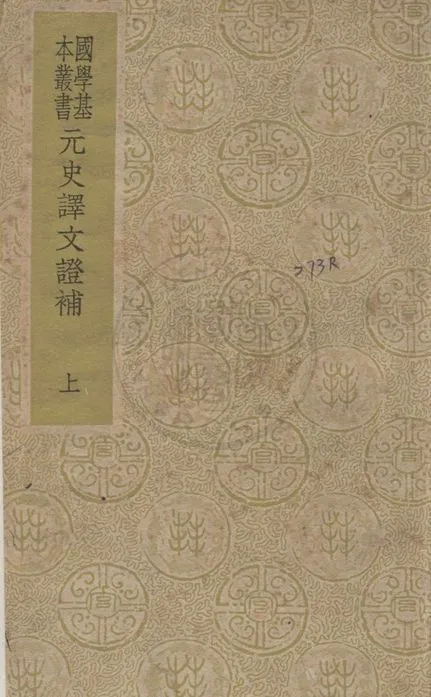 國學基
本叢書
元史譯文證補
上
273R